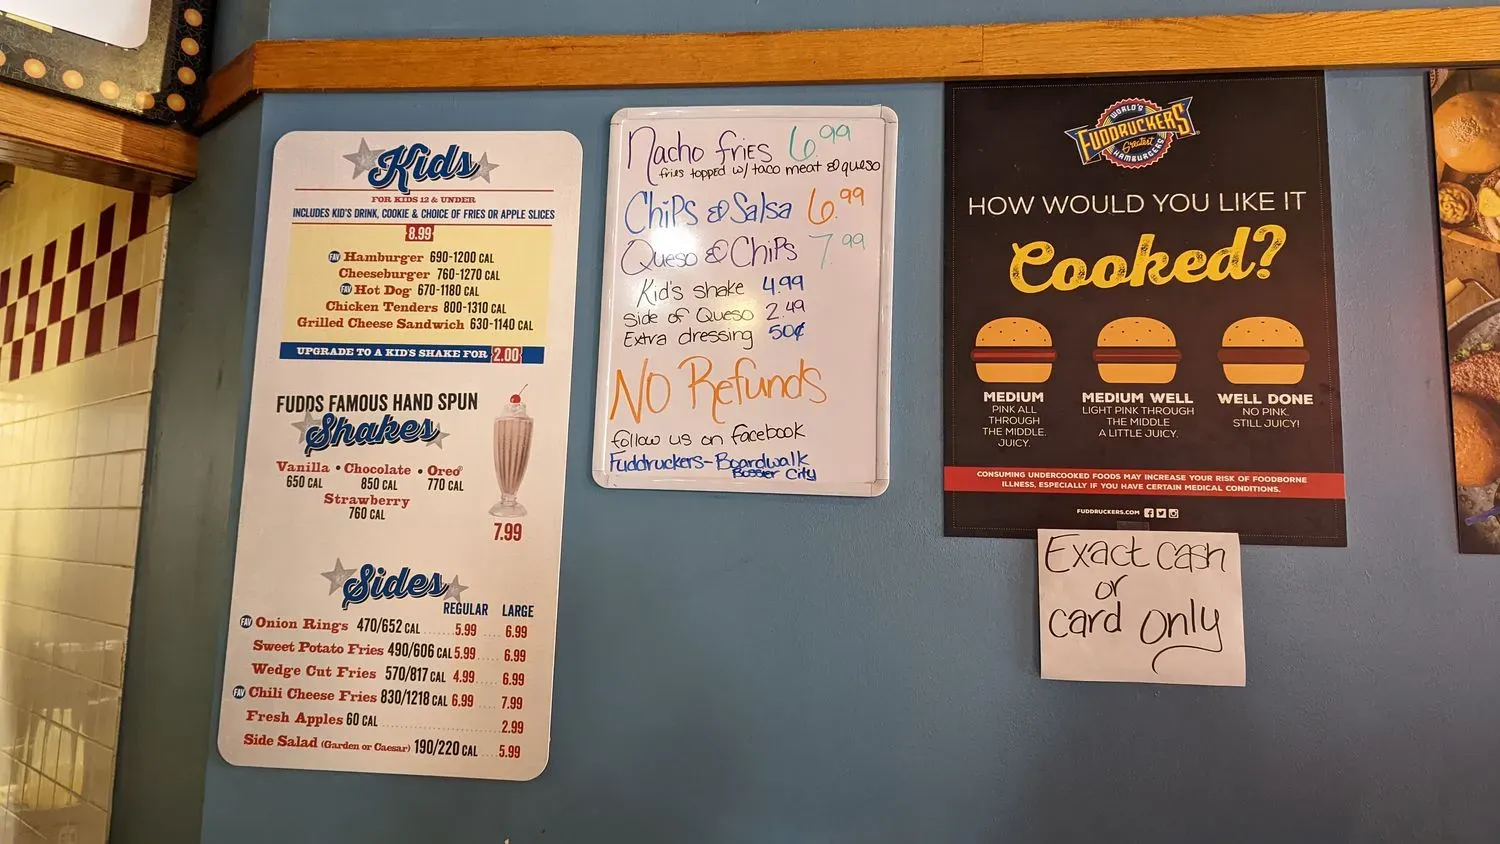 Kids
FOR KIDS 12 & UNDER
INCLUDES KID'S DRINK, COOKIE & CHOICE OF FRIES OR APPLE SLICES
8.99
FAV Hamburger 690-1200 CAL
Cheeseburger 760-1270 CAL
FAV Hot Dog 670-1180 CAL
Chicken Tenders 800-1310 CAL
Grilled Cheese Sandwich 630-1140 CAL
UPGRADE TO A KID'S SHAKE FOR 2.00
FUDDS FAMOUS HAND SPUN
Shakes
Vanilla • Chocolate • Oreo®
650 CAL 850 CAL 770 CAL
Strawberry
760 CAL
7.99
Sides
REGULAR LARGE
FAV Onion Rings 470/652 CAL ....... 5.99 .... 6.99
Sweet Potato Fries 490/606 CAL 5.99 ..... 6.99
Wedge Cut Fries 570/817 CAL 4.99 ..... 6.99
FAV Chili Cheese Fries 830/1218 CAL 6.99 .... 7.99
Fresh Apples 60 CAL ........................ 2.99
Side Salad (Garden or Caesar) 190/220 CAL .... 5.99
Nacho fries 6.99
fries topped w/ taco meat & queso
Chips & Salsa 6.99
Queso & Chips 7.99
Kid's shake 4.99
Side of Queso 2.49
Extra dressing 50¢
NO Refunds
follow us on facebook
Fuddruckers-Boardwalk
Bossier City
WORLD'S
FUDDRUCKERS
Greatest
HAMBURGERS
HOW WOULD YOU LIKE IT
Cooked?
MEDIUM
PINK ALL
THROUGH
THE MIDDLE.
JUICY.
MEDIUM WELL
LIGHT PINK THROUGH
THE MIDDLE
A LITTLE JUICY.
WELL DONE
NO PINK.
STILL JUICY!
CONSUMING UNDERCOOKED FOODS MAY INCREASE YOUR RISK OF FOODBORNE
ILLNESS, ESPECIALLY IF YOU HAVE CERTAIN MEDICAL CONDITIONS.
FUDDRUCKERS.COM
Exact cash
or
card only